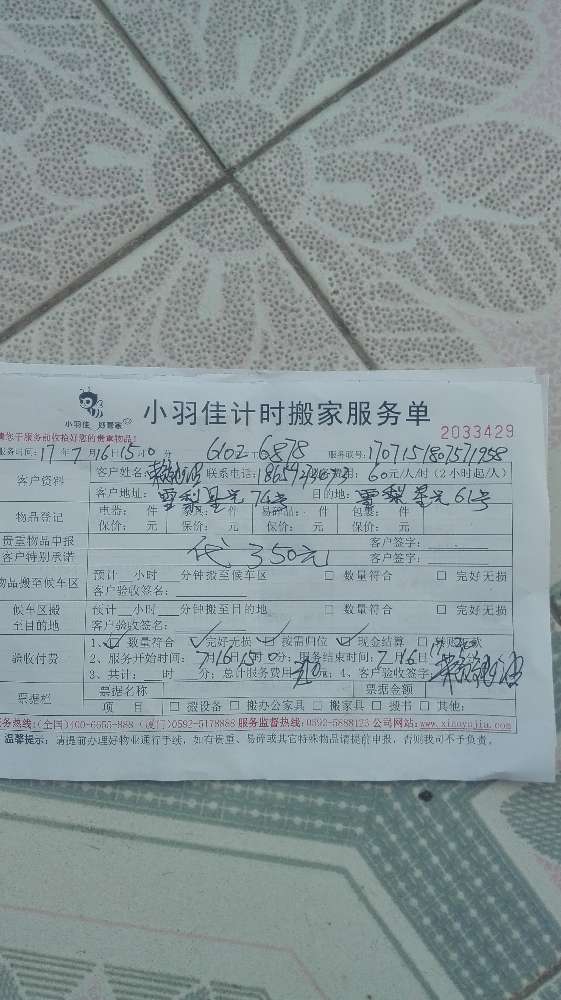 小羽佳 好管家
小羽佳计时搬家服务单
2033429
请您于服务前收拾好您的贵重物品!
服务时间: 17年7月16日15时10分 6102 6878 服务联号: 1707151807571958
客户资料
客户姓名: 联系电话: 费用: 60元/人/时 (2小时起/人)
客户地址: 雪梨星光76号 目的地: 雪梨星光61号
物品登记
电器: 件 家具: 件 易碎品: 件 包裹: 件
保价: 元 保价: 元 保价: 元 保价: 元
贵重物品申报 客户签字:
客户特别承诺 代350元 客户签字:
物品搬至候车区
预计 小时 分钟搬至候车区 □ 数量符合 □ 完好无损
客户验收签名:
候车区搬至目的地
预计 小时 分钟搬至目的地 □ 数量符合 □ 完好无损
客户验收签名:
验收付费
1、□ 数量符合 □ 完好无损 □ 按需归位 □ 现金结算 □
2、服务开始时间: 7月16日15时10分; 服务结束时间: 7月16日
3、共计: 时 分; 总计服务费用 元 4、客户验收签字:
票据栏
票据名称 票据金额
项目 □ 搬设备 □ 搬办公家具 □ 搬家具 □ 搬书 □ 其他:
服务热线:(全国)400-6655-888 (厦门)0592-5178888 服务监督热线:0592-5888123 公司网站:www.xiaoyujia.com
温馨提示: 请提前办理好物业通行手续, 如有贵重、易碎或其它特殊物品请提前申报, 否则我司不予负责。